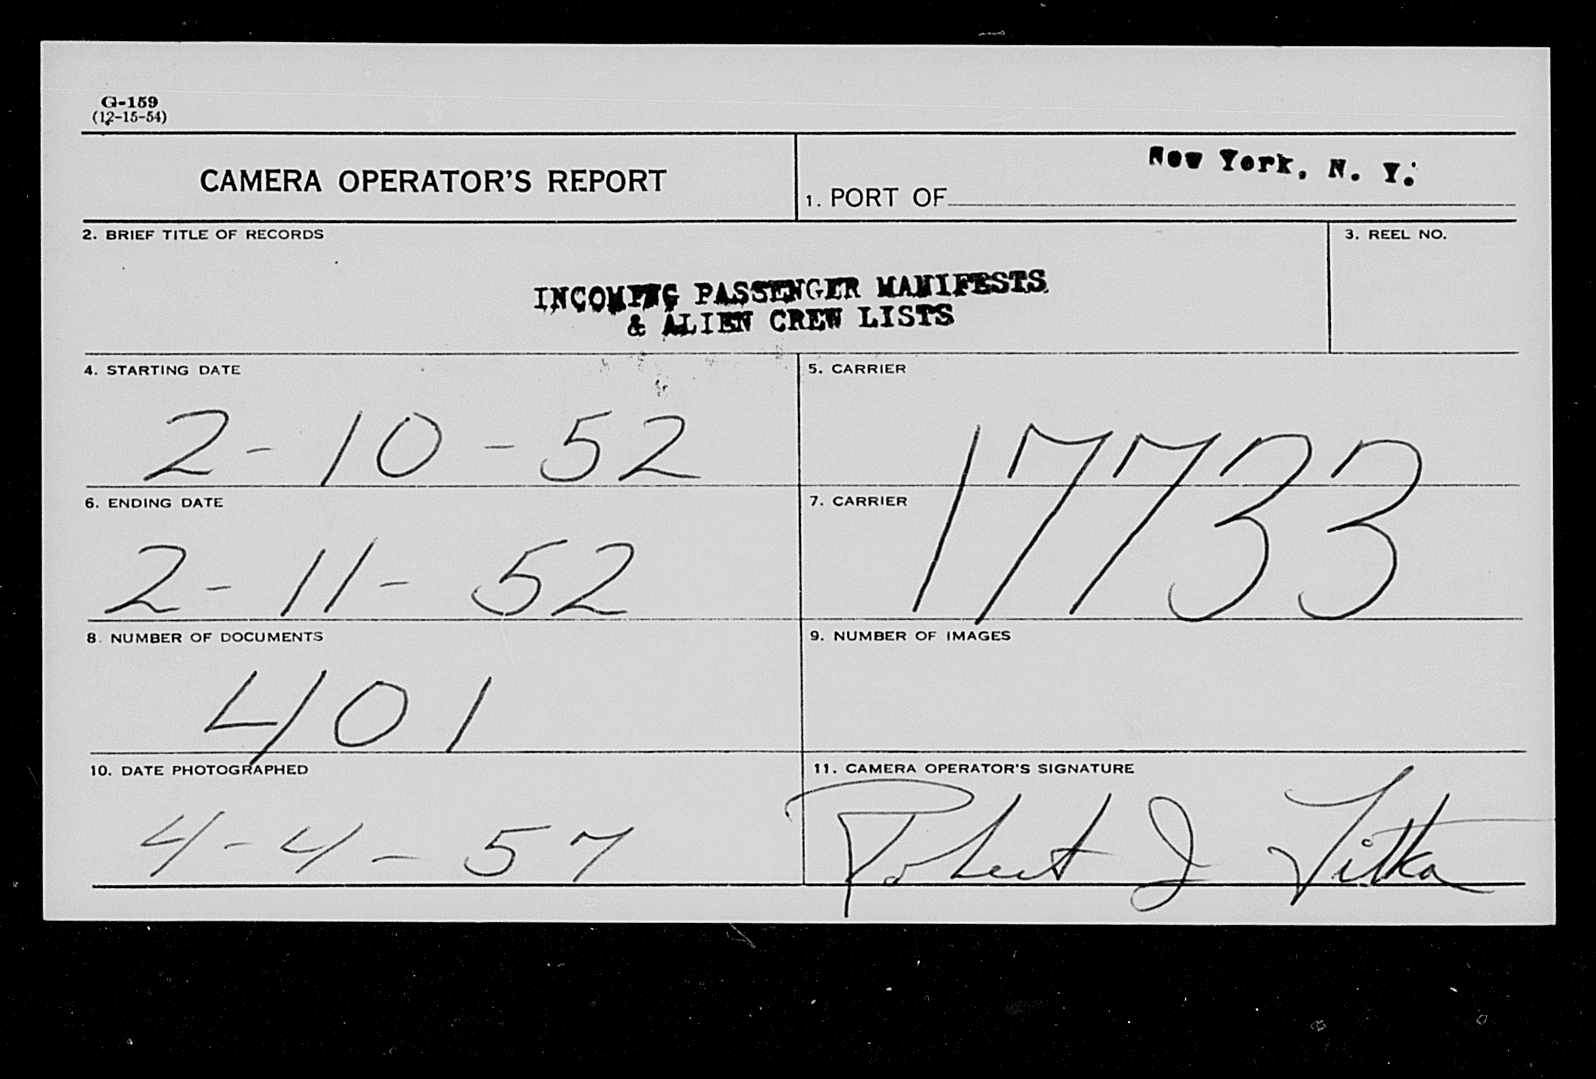 G-159
(12-15-54)
CAMERA OPERATOR'S REPORT
1. PORT OF New York, N. Y.
2. BRIEF TITLE OF RECORDS
3. REEL NO.
INCOMING PASSENGER MANIFESTS
& ALIEN CREW LISTS
4. STARTING DATE
5. CARRIER
2-10-52
17733
6. ENDING DATE
7. CARRIER
2-11-52
8. NUMBER OF DOCUMENTS
9. NUMBER OF IMAGES
401
10. DATE PHOTOGRAPHED
11. CAMERA OPERATOR'S SIGNATURE
4-4-57
Robert J